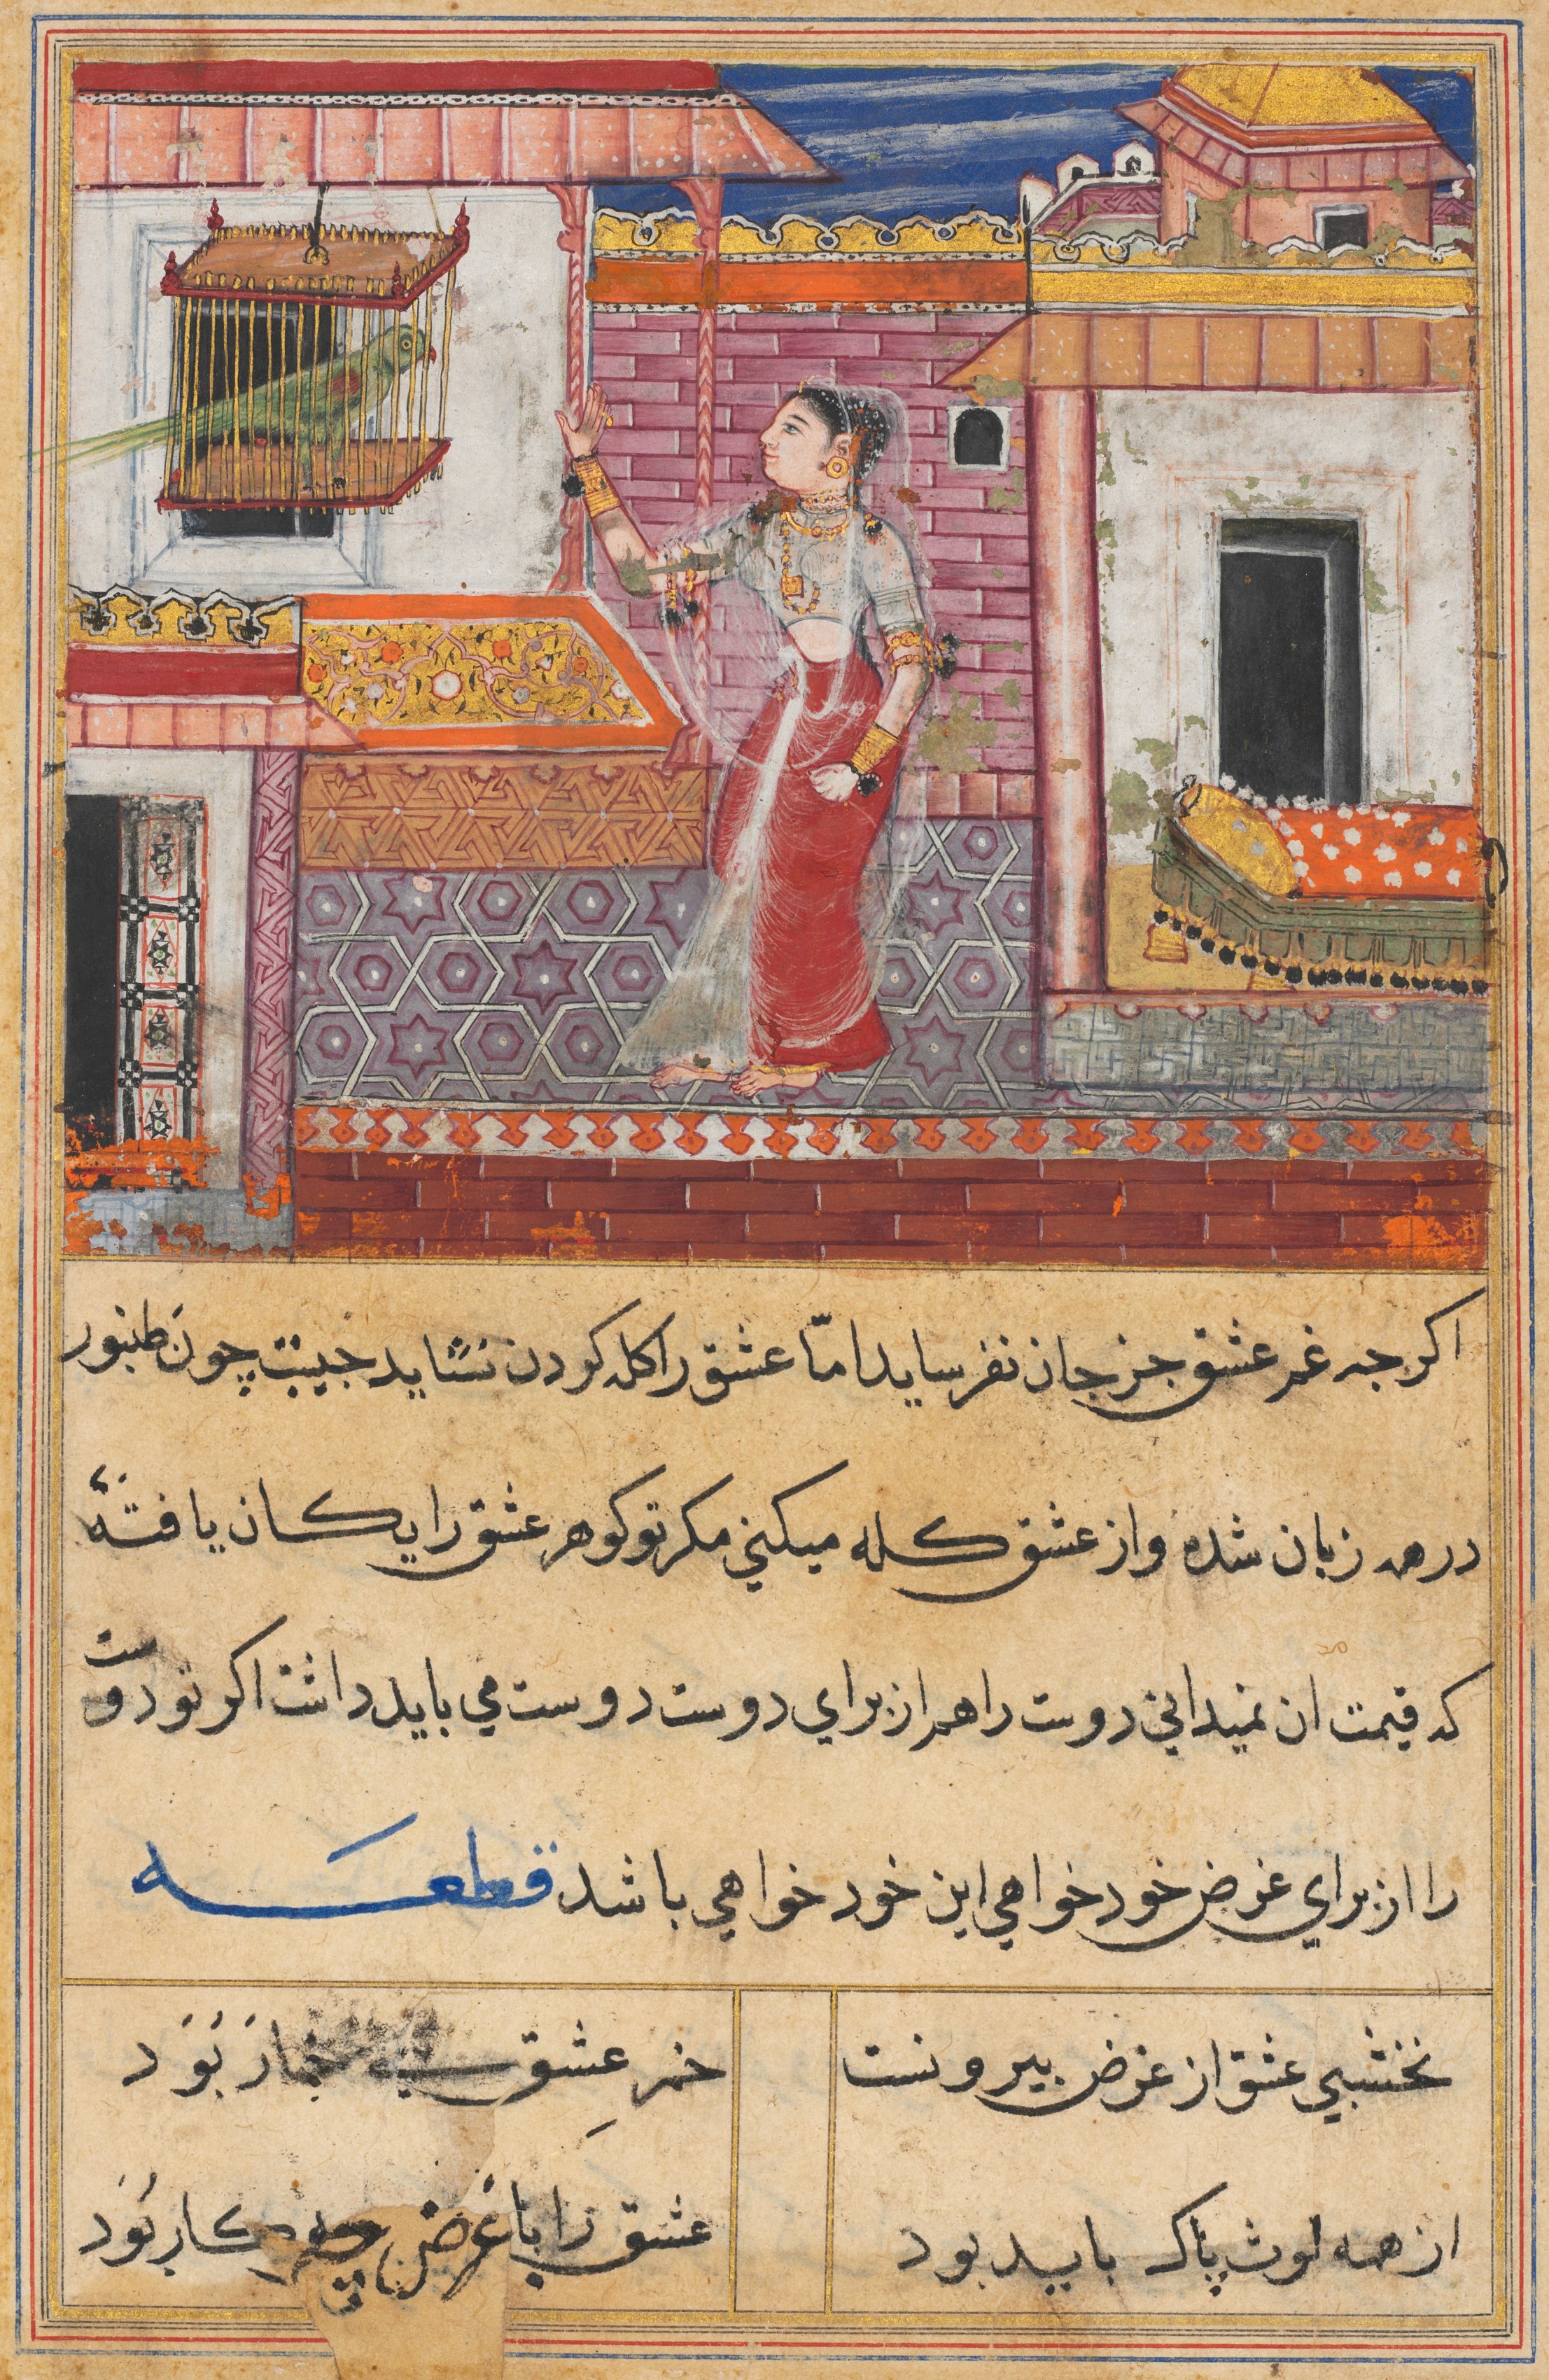 اكرجه غم عشق جز جان نفرسايد امّا عشق را كله كردن نشايد جيبت چون طنبور
در همه زبان شدهٔ و از عشق كله ميكني مكر تو كوهر عشق رايكان يافتهٔ
كه قيمت ان نميداني دوست را هم از براي دوست دوست مي بايد داشت اكر تو دوست
را از براي غرض خود خواهي اين خود خواهي باشد قطعه
نخشبي عشق از غرض بيرونست
خمرِ عشق خمار بُوَد
از همه لوث پاك بايد بود
عشق را با غرض چه كار بُوَد